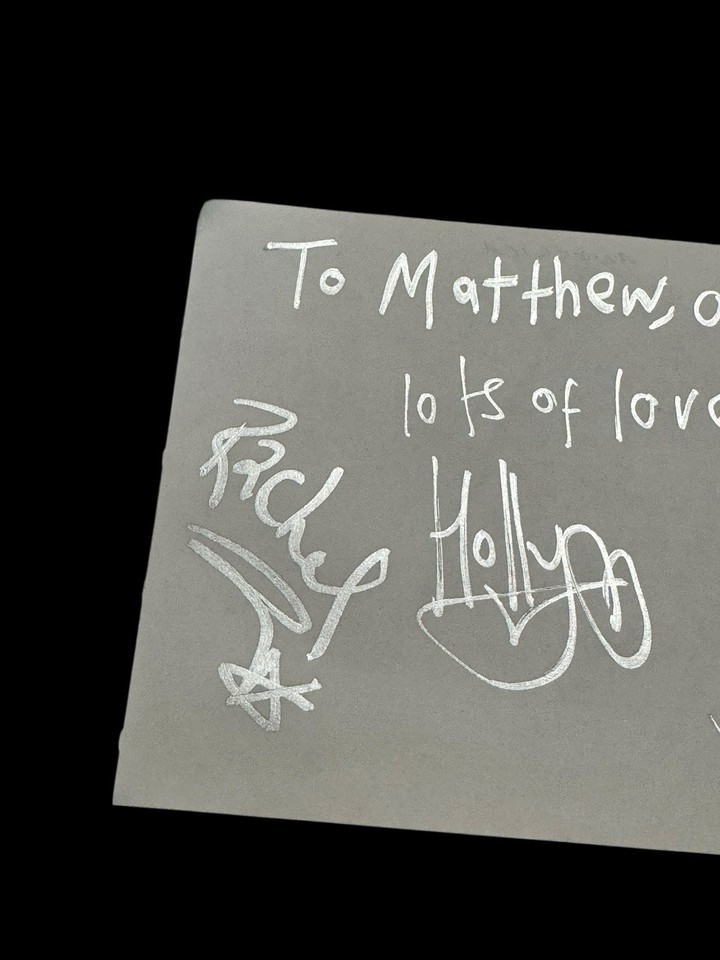 To Matthew,
lots of love
Rachel
Holly